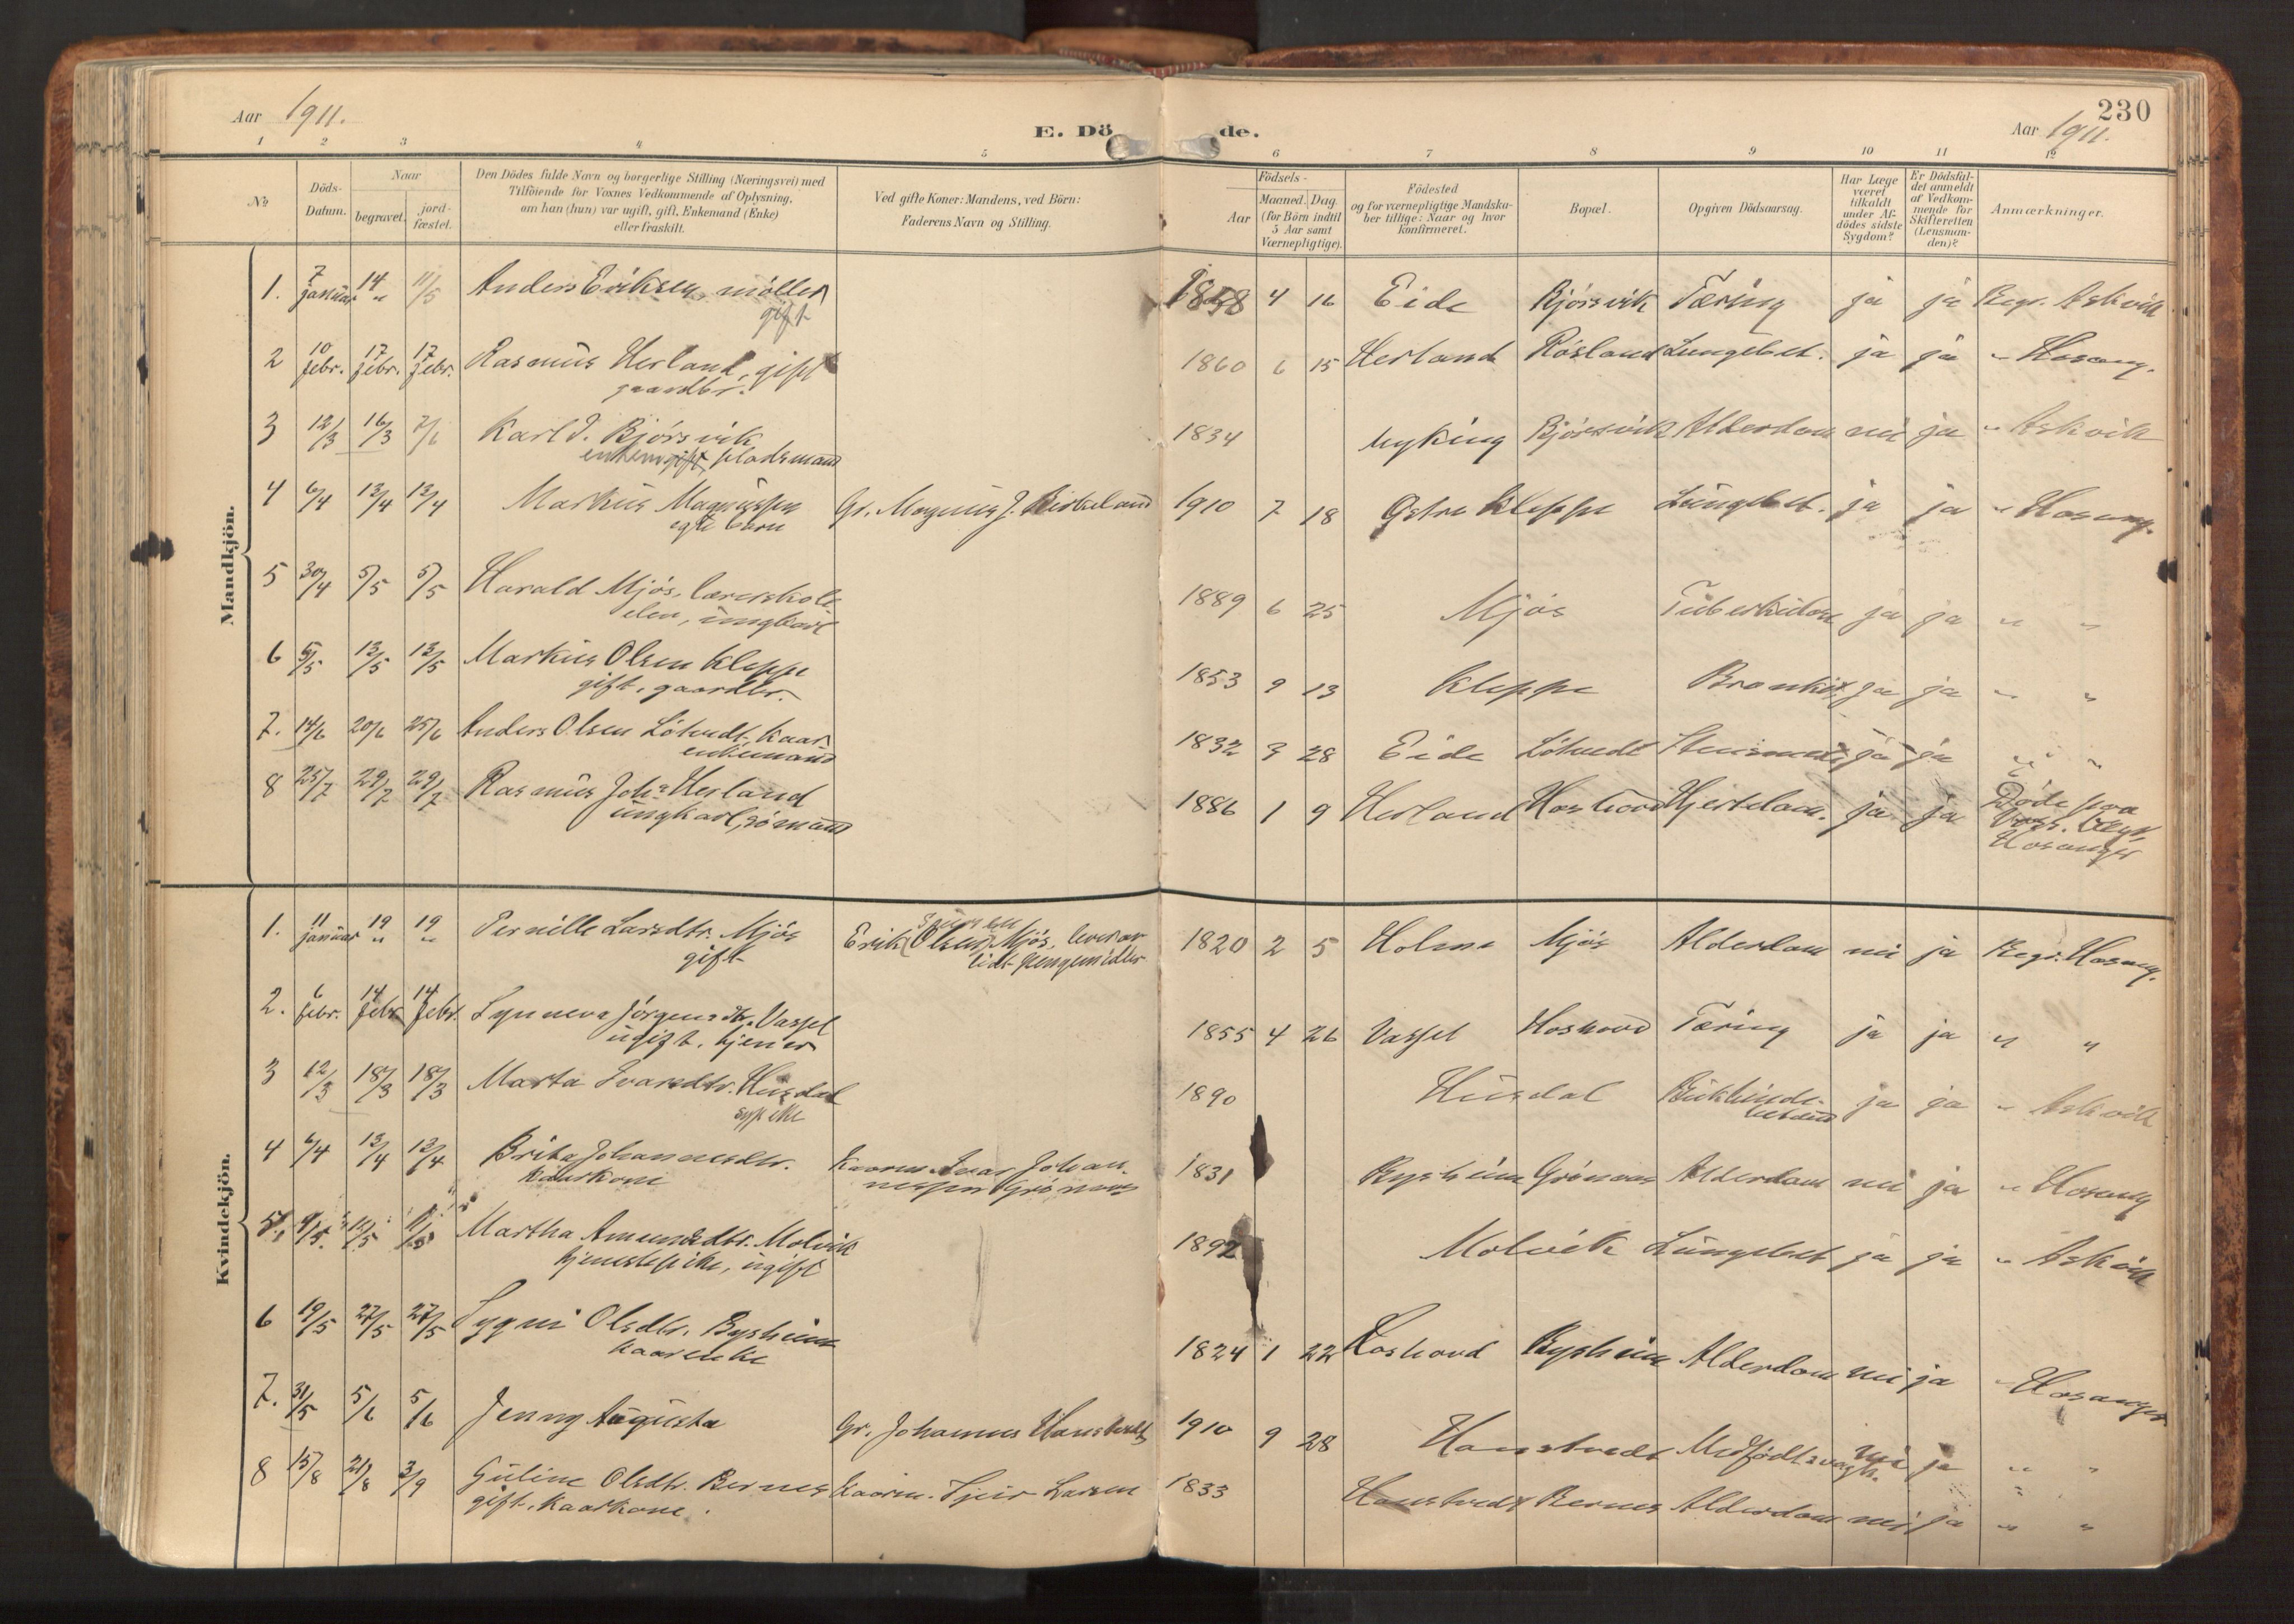 230
Aar 1911.
E. Dö de.
Aar 1911.
1 2 3 4 5 6 7 8 9 10 11 12
№
Döds-
Datum.
Naar
begravet.
jord-
fæstet.
Den Dödes fulde Navn og borgerlige Stilling (Næringsvei) med
Tilföiende for Voxnes Vedkommende af Oplysning,
om han (hun) var ugift, gift, Enkemand (Enke)
eller fraskilt.
Ved gifte Koner: Mandens, ved Börn:
Faderens Navn og Stilling.
Födsels-
Aar
Maaned. Dag.
(for Börn indtil
5 Aar samt
Værnepligtige).
Födested
og for værnepligtige Mandska-
ber tillige: Naar og hvor
konfirmeret.
Bopæl.
Opgiven Dödsaarsag.
Har Læge
været
tilkaldt
under Af-
dödes sidste
Sygdom?
Er Dödsfal-
det anmeldt
af Vedkom-
mende for
Skifteretten
(Lensman-
den)?
Anmærkninger.
Mandkjön.
1. 7 januar 14 " 11/5 Anders Eriksen, møller 1858 4 16 Eide Bjørsvik Tæring ja ja Begr. Askvik
gift
2 10 febr. 17 febr. 17 febr. Rasmus Herland, gift 1860 6 15 Herland Røsland Lungebet. ja ja " Hosang.
gaardbr.
3 12/3 16/3 7/6 Karl J. Bjørsvik 1834 Myking Bjørsvik Alderdom nei ja " Askvik
pladsmand
4 6/4 12/4 12/4 Markus Magnussen Gr. Magnus J. Birkeland 1910 7 18 Østre Kleppe Lungebet. ja ja " Hosang.
egte barn
5 30/4 5/5 5/5 Harald Mjøs, lærerskole 1889 6 25 Mjøs Tuberkulose ja ja " "
elev, ungkarl
6 6/5 12/5 12/5 Markus Olsen Kleppe 1853 9 13 Kleppe Bronkit ja ja " "
gift, gaardbr.
7. 14/6 20/6 25/6 Anders Olsen Løtvedt, kaar 1832 3 28 Eide Løtvedt ja ja " "
enkemand
8 25/7 29/7 29/7 Rasmus Johs Herland 1886 1 9 Herland Hoshovd Hjertelam. ja ja Døde paa
ungkarl, sømand Voss. Begr.
Hosanger
Kvindekjön.
1. 11 januar 19 " 19 " Pernille Larsdtr. Mjøs Erik (Olsen) Mjøs, lever av 1820 2 5 Holme Mjøs Alderdom nei ja Begr. Hosang.
gift lidt pengemidler
2. 6 febr. 14 febr. 14 febr. Synneva Jørgensdtr. Vassel 1855 4 26 Vassel Hoshovd Tæring ja ja " "
ugift, tjener
3 12/3 18/3 18/3 Marta Ivarsdtr. Husdal 1890 Husdal Bukhinde- ja ja " Askvik
sypike
4 6/4 12/4 12/4 Brita Johannesdtr. Kaarm. Ivar Johan- 1831 Bysheim Grønaas Alderdom nei ja " Hosang
kaarkone nessen Grønaas
5. 4/5 11/5 11/5 Martha Amundsdtr. Molvik 1892 Molvik Lungebet ja ja " Askvik
tjenestepike, ugift
6 19/5 27/5 27/5 Sygni Olsdtr. Bysheim 1824 1 22 Hoshovd Bysheim Alderdom nei ja " Hosanger
kaarenke
7. 31/5 5/6 5/6 Jenny Augusta Gr. Johannes Hanstvedt 1910 9 28 Hanstvedt Medfødt svagh. nei ja " "
8 15/8 21/8 3/9 Guline Olsdtr. Bernes Kaarm. Larsen 1833 Hanstvedt Bernes Alderdom nei ja " "
gift, kaarkone.